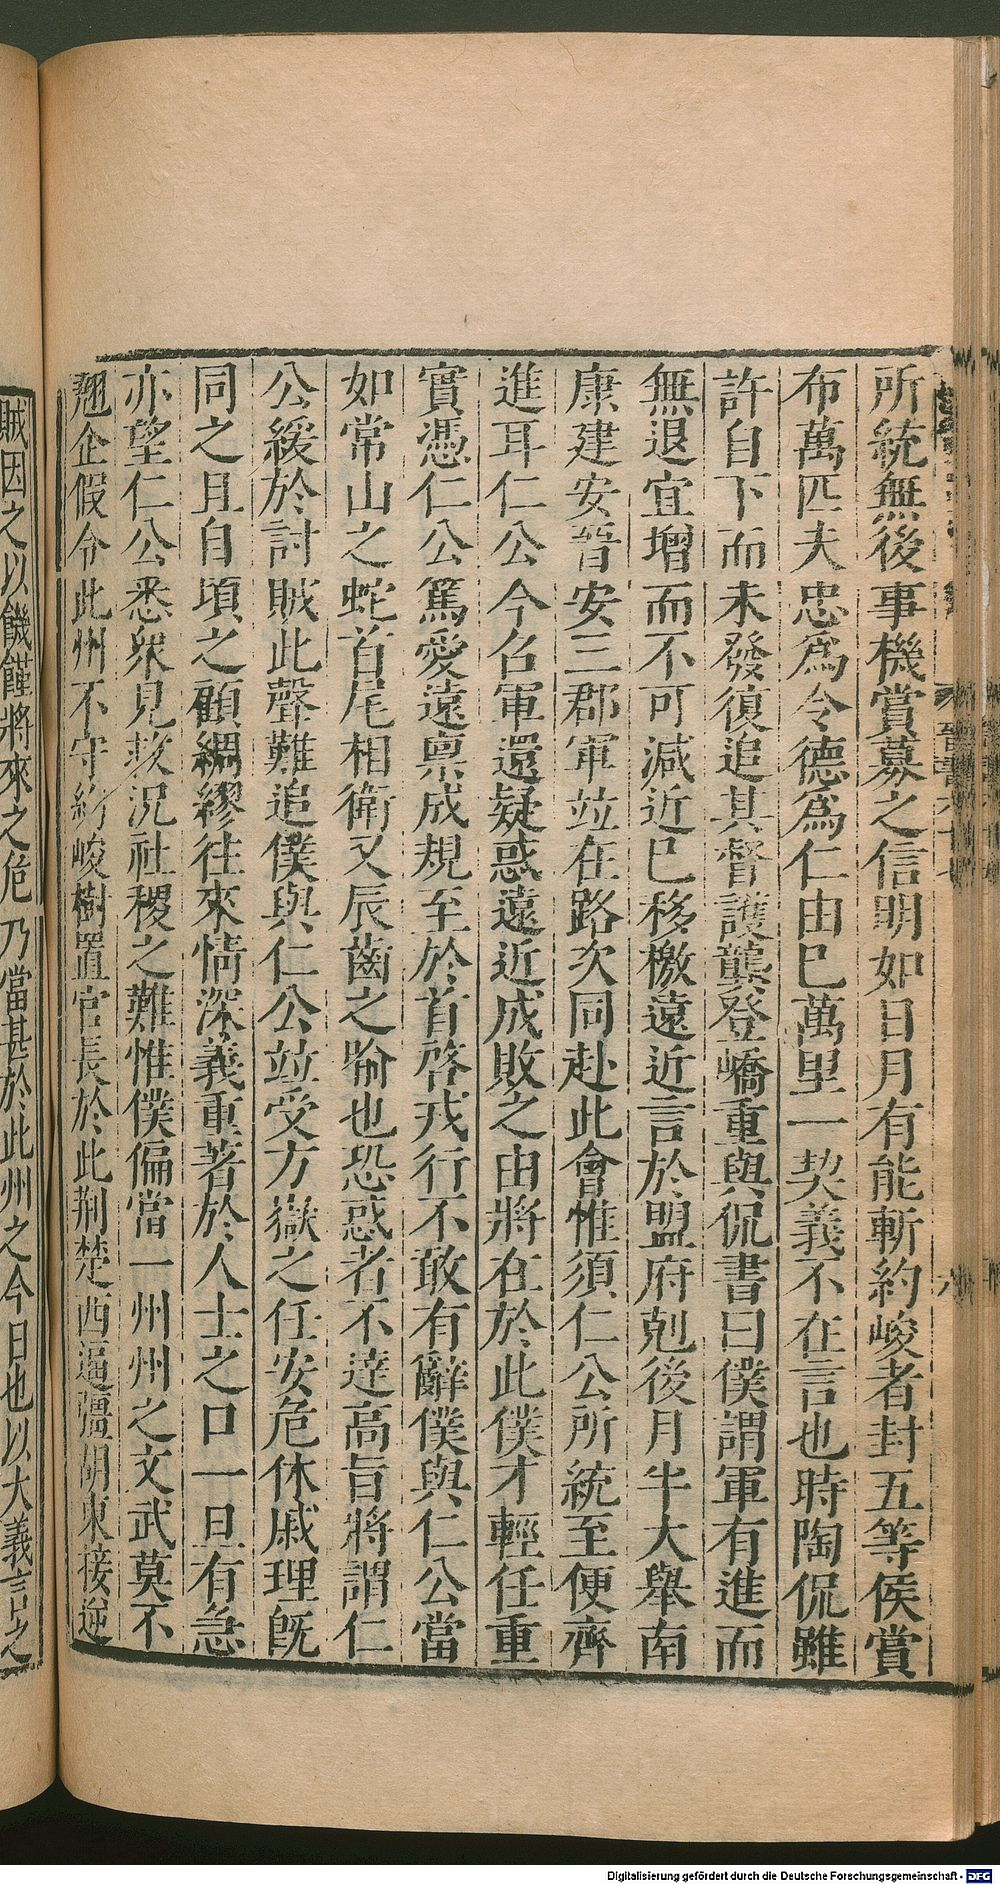 所統無後事機賞募之信明如日月有能斬約峻者封五等侯賞
布萬匹夫忠爲令德爲仁由巳萬里一契義不在言也時陶侃雖
許自下而未發復追其督護龔登嶠重與侃書曰僕謂軍有進而
無退宜增而不可減近巳移檄遠近言於盟府剋後月半大舉南
康建安晉安三郡軍竝在路次同赴此會惟須仁公所統至便齊
進耳仁公今召軍還疑惑遠近成敗之由將在於此僕才輕任重
實憑仁公篤愛遠禀成規至於首啓戎行不敢有辭僕與仁公當
如常山之蛇首尾相衛又辰齒之喻也恐惑者不達高旨將謂仁
公緩於討賊此聲難追僕與仁公竝受方嶽之任安危休戚理旣
同之且自頃之顧綢繆往來情深義重著於人士之口一旦有急
亦望仁公悉衆見救況社稷之難惟僕偏當一州州之文武莫不
翹企假令此州不守約峻樹置官長於此荆楚西逼彊胡東接逆
賊因之以饑饉將來之危乃當甚於此州之今日也以大義言之
Digitalisierung gefördert durch die Deutsche Forschungsgemeinschaft - DFG